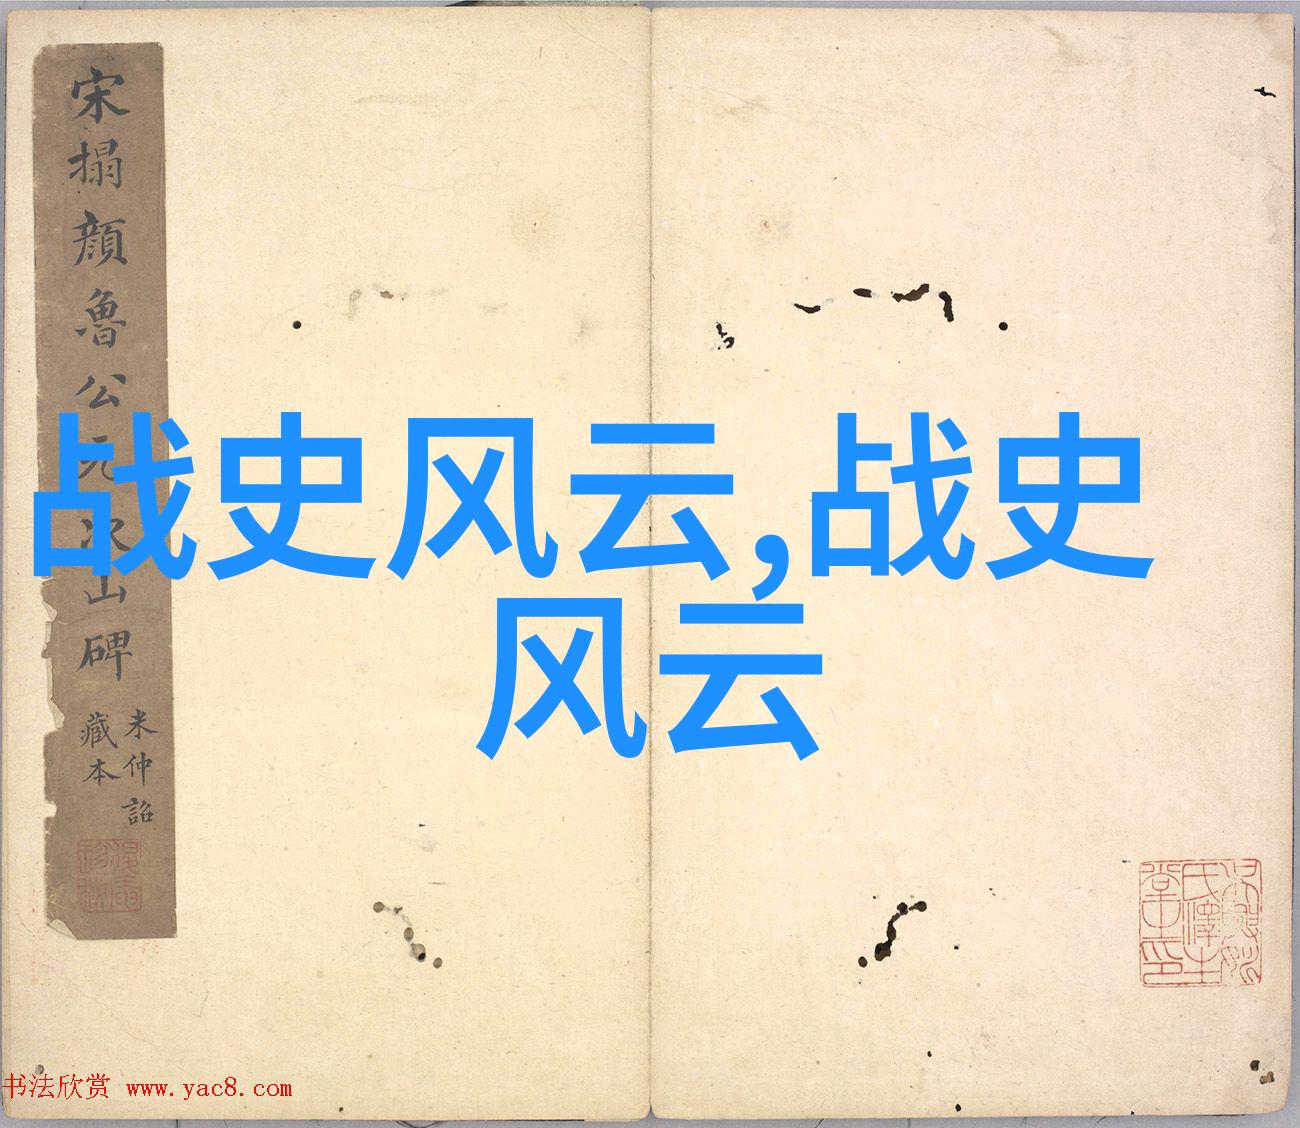 宋搨顏魯公元次山碑
米仲詔
藏本
战史风云,战史
风云
书法欣赏 www.yac8.com